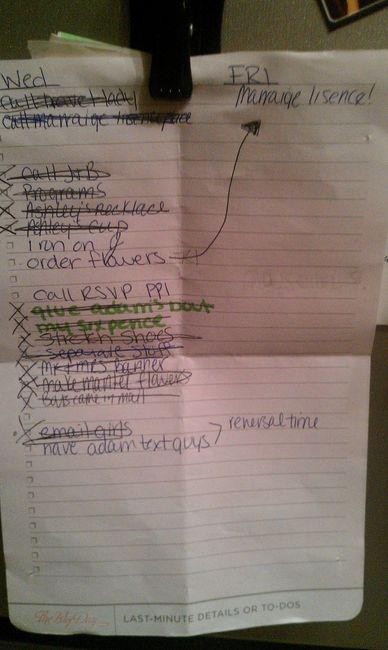 Wed
FRI
Marraige lisence!
call travel lady
call marraige
call J+B
Programs
Ashley's necklace
Ashley's cup
iron on
order flowers
call RSVP PPl
give adam's
my sixpence
stretch shoes
separate stuff
mr + mrs banner
make mantel flowers
came in mail
email girls
have adam text guys
rehersal time
The Big Day
LAST-MINUTE DETAILS OR TO-DOS